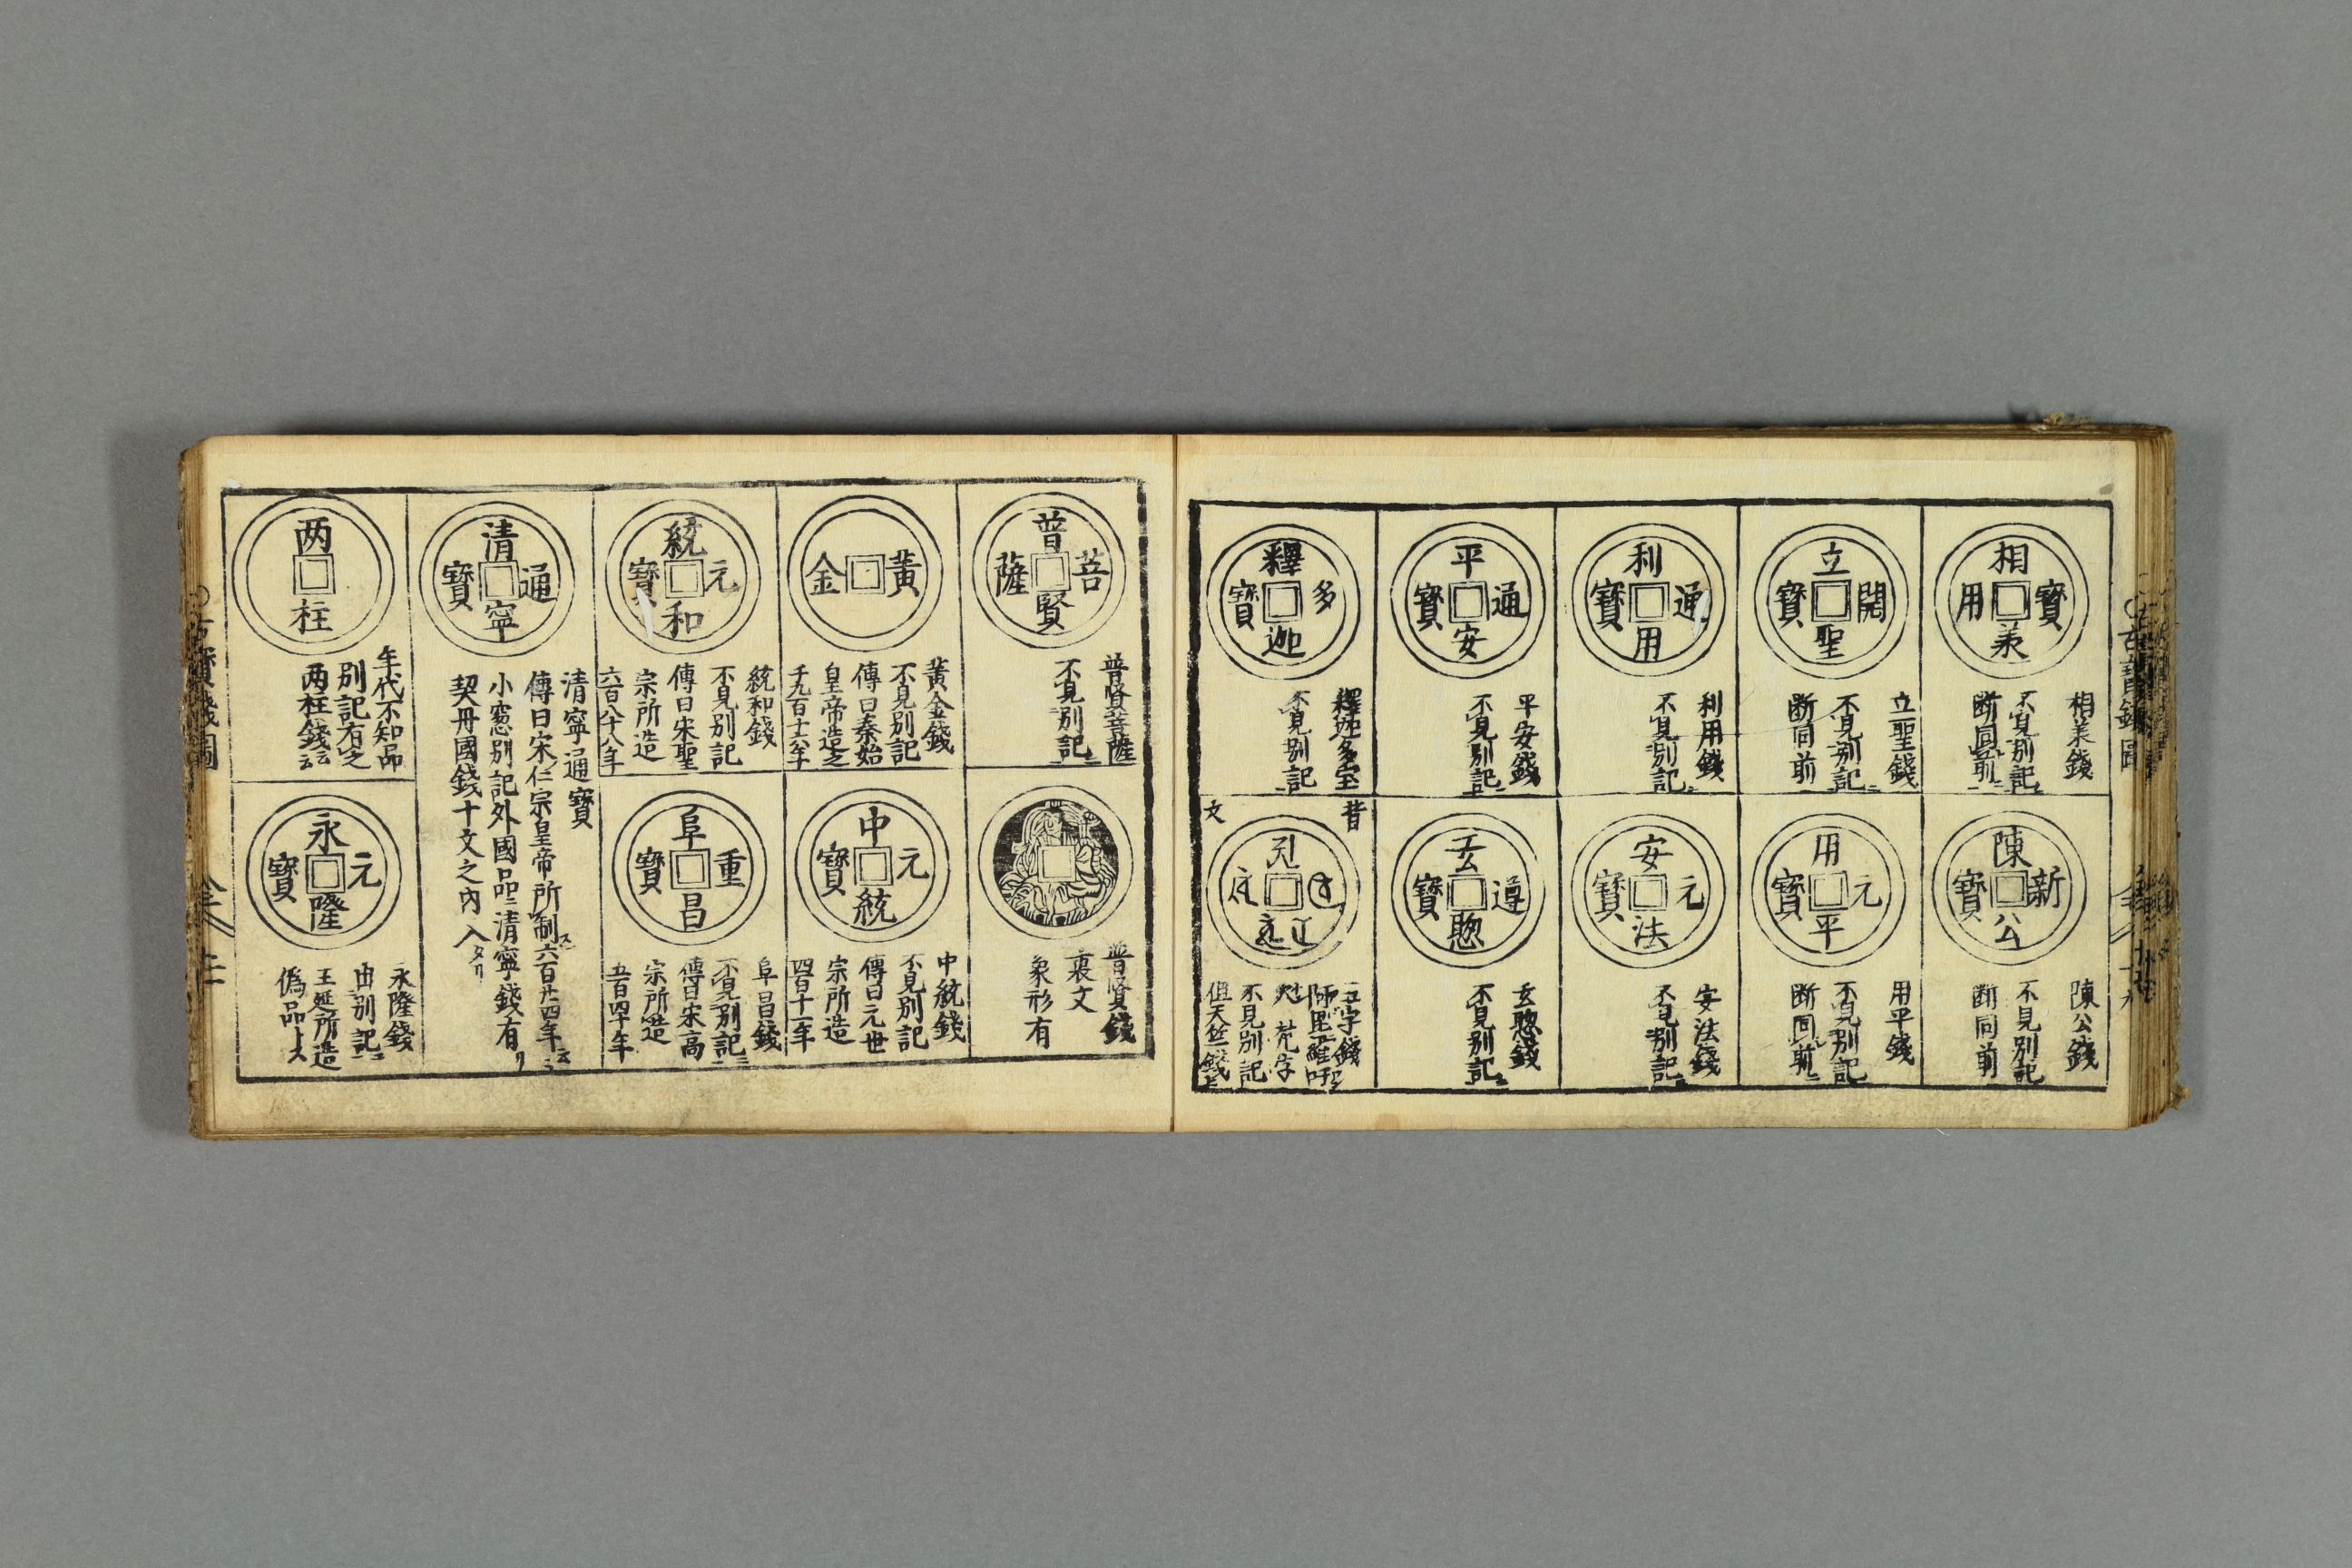 相寶羕用
相羕錢
不見別記ニ
断同前
陳新公寶
陳公錢
不見別記
断同前
立開聖寶
立聖錢
不見別記ニ
断同前
用元平寶
用平錢
不見別記
断同前ニ
利通用寶
利用錢
不見別記ニ
安元法寶
安法錢
不見別記ニ
平通安寶
平安錢
不見別記ニ
玄遵愍寶
玄愍錢
不見別記ニ
釋多迦寶
釋迦多宝
不見別記
昔
文
五字錢
梵字
不見別記
但天竺錢
普菩賢薩
普賢菩薩
不見別記ニ
普賢錢
裏文
象形有
黃金
黃金錢
不見別記
傳曰秦始
皇帝造之
中元統寶
中統錢
不見別記
傳曰元世
宗所造
四百十一年
統元和寶
統和錢
不見別記
傳曰宋聖
宗所造
六百八十八年
阜重昌寶
阜昌錢
不見別記ニ
傳曰宋高
宗所造
五百四十年
清通寧寶
清寧通寶
傳曰宋仁宗皇帝所制六百廿四年ニ
小窓別記外國品ニ清寧錢有リ
契丹國錢十文之內入タリ
两柱
年代不知品
別記有之
两柱錢云
永元隆寶
永隆錢
由別記ニ
王延所造
偽品ト入
古寶錢圖